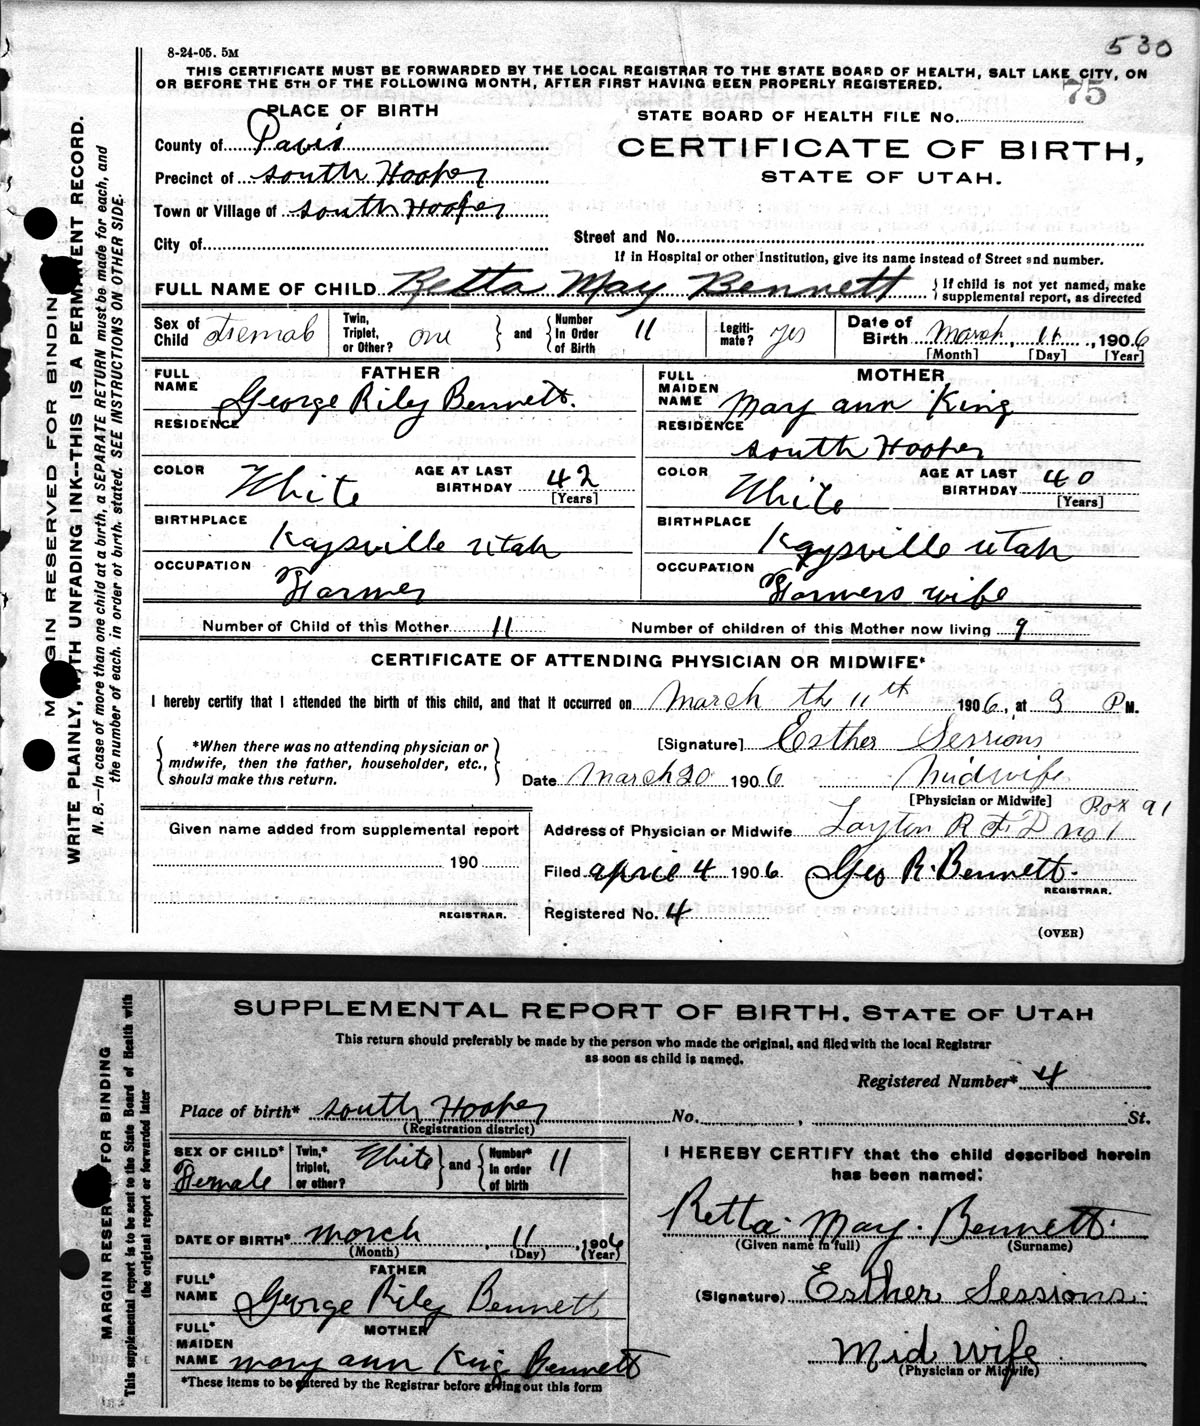 530
8-24-05. 5M
THIS CERTIFICATE MUST BE FORWARDED BY THE LOCAL REGISTRAR TO THE STATE BOARD OF HEALTH, SALT LAKE CITY, ON
OR BEFORE THE 5TH OF THE FOLLOWING MONTH, AFTER FIRST HAVING BEEN PROPERLY REGISTERED.
75
PLACE OF BIRTH
STATE BOARD OF HEALTH FILE No.
County of Davis
CERTIFICATE OF BIRTH,
STATE OF UTAH.
Precinct of South Hooper
Town or Village of South Hooper
City of
Street and No.
If in Hospital or other Institution, give its name instead of Street and number.
FULL NAME OF CHILD Retta May Bennett { If child is not yet named, make
supplemental report, as directed
Sex of Child Female
Twin, Triplet, or Other? one } and { Number In Order of Birth 11
Legiti-mate? yes
Date of Birth March, 11, 1906
[Month] [Day] [Year]
FATHER
FULL NAME George Riley Bennett.
RESIDENCE
COLOR White AGE AT LAST BIRTHDAY 42 [Years]
BIRTHPLACE Kaysville Utah
OCCUPATION Farmer
MOTHER
FULL MAIDEN NAME Mary ann King
RESIDENCE South Hooper
COLOR White AGE AT LAST BIRTHDAY 40 [Years]
BIRTHPLACE Kaysville Utah
OCCUPATION Farmers wife
Number of Child of this Mother 11 Number of children of this Mother now living 9
CERTIFICATE OF ATTENDING PHYSICIAN OR MIDWIFE*
I hereby certify that I attended the birth of this child, and that it occurred on March the 11th 1906, at 9 P M.
{ *When there was no attending physician or
midwife, then the father, householder, etc.,
should make this return. }
[Signature] Esther Sessions
Date March 20 1906 Midwife
[Physician or Midwife]
Box 91
Address of Physician or Midwife Layton R F D no 1
Given name added from supplemental report
190
REGISTRAR.
Filed april 4 1906 Geo R. Bennett.
REGISTRAR.
Registered No. 4
(OVER)
MARGIN RESERVED FOR BINDING
WRITE PLAINLY, WITH UNFADING INK--THIS IS A PERMANENT RECORD.
N. B.—In case of more than one child at a birth, a SEPARATE RETURN must be made for each, and
the number of each, in order of birth, stated. SEE INSTRUCTIONS ON OTHER SIDE.
SUPPLEMENTAL REPORT OF BIRTH, STATE OF UTAH
This return should preferably be made by the person who made the original, and filed with the local Registrar
as soon as child is named.
Registered Number* 4
Place of birth* South Hooper No. , St.
(Registration district)
SEX OF CHILD* Female
Twin,* triplet, or other? White } and { Number* in order of birth 11
DATE OF BIRTH* March, 11, 1906
(Month) (Day) (Year)
FATHER
FULL* NAME George Riley Bennett
MOTHER
FULL* MAIDEN NAME mary ann King Bennett
*These items to be entered by the Registrar before giving out this form
I HEREBY CERTIFY that the child described herein
has been named:
Retta. May. Bennett.
(Given name in full) (Surname)
(Signature) Esther Sessions.
Mid wife
(Physician or Midwife)
MARGIN RESERVED FOR BINDING
This supplemental report is to be sent to the State Board of Health with
the original report or forwarded later